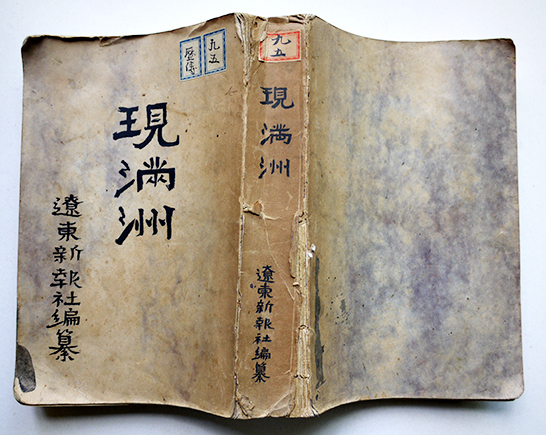 九五
現満洲
遼東新報社編纂
九五
現満洲
遼東新報社編纂